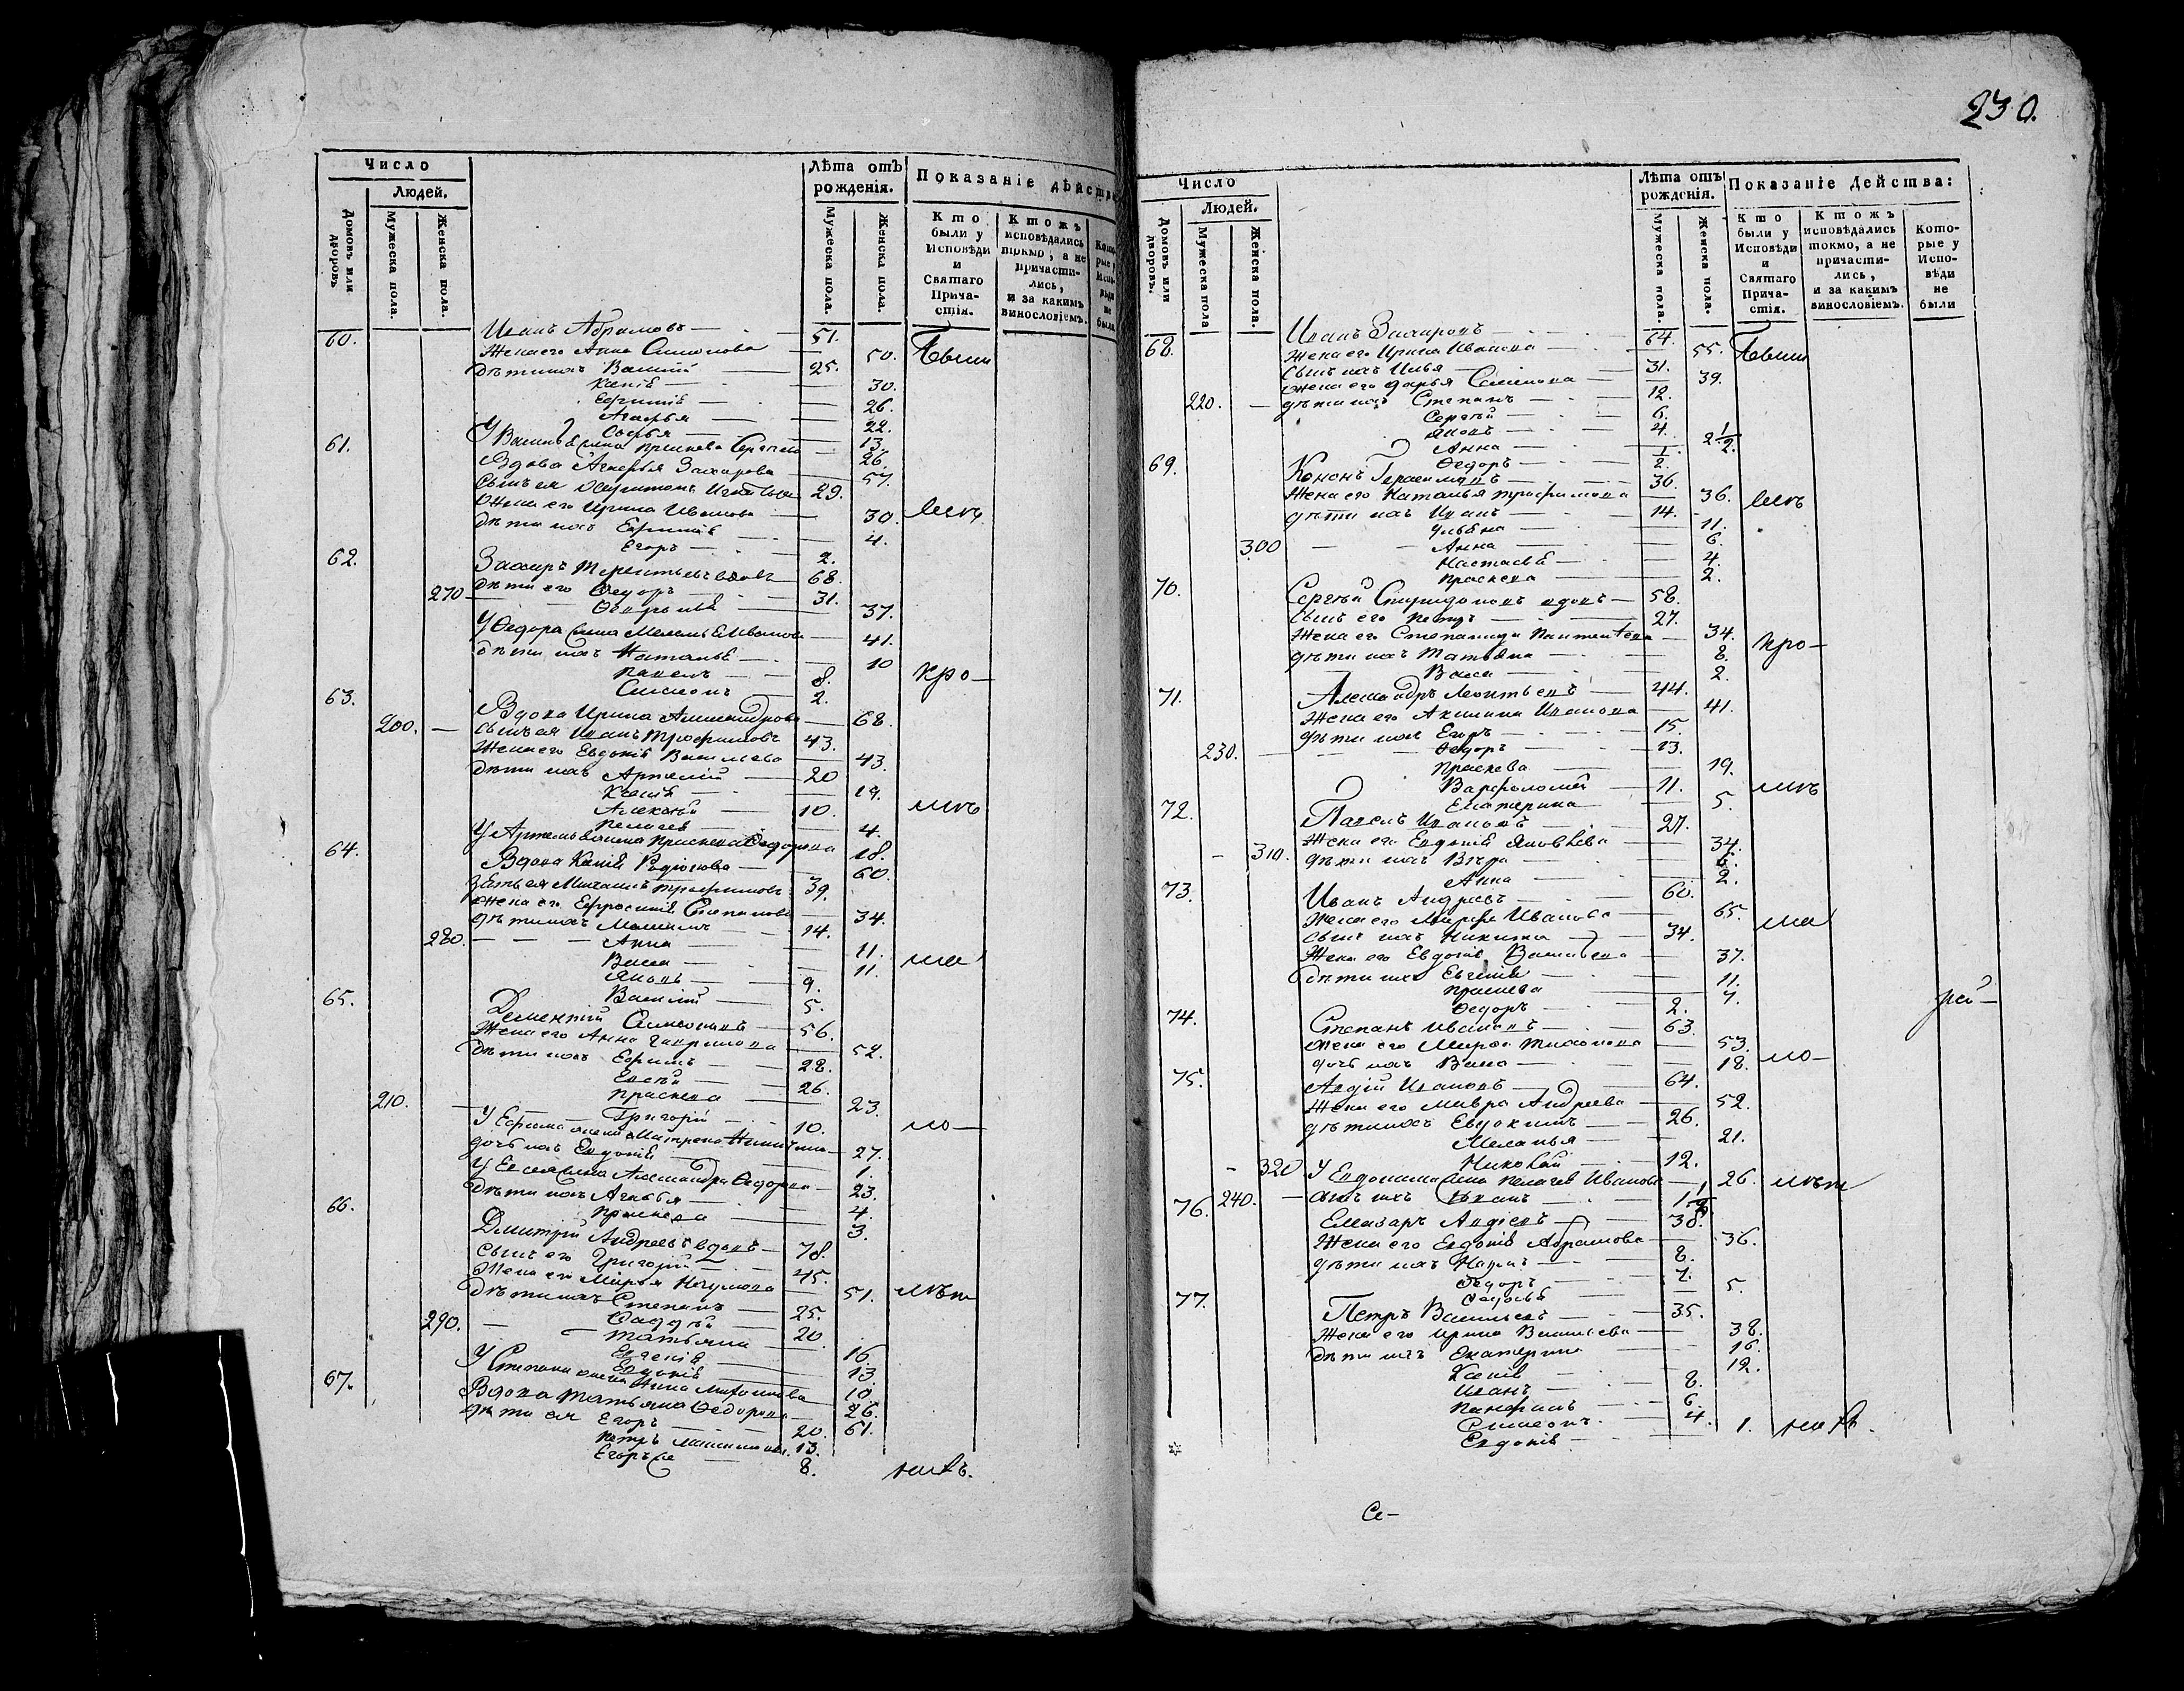 Число
Людей.
Домовъ или дворовъ.
Мужеска пола.
Женска пола.
Лѣта отъ рожденія.
Мужеска пола.
Женска пола.
Показаніе дѣйства
Кто были у Исповѣди и Святаго Причастія.
Ктожъ исповѣдались токмо, а не причастились, и за какимъ винословіемъ.
Которые у Исповѣди не были
60. Иванъ Абрамовъ — 51.
Жена его Анна Симонова — 50. Явши
Дѣти ихъ Василій — 25.
Ксенія — 30.
Ефимія — 26.
Агафья — 22.
Софья — 13.
61. У Василья жена Прасковья — 26.
Вдова Агафья Захарова — 57.
Сынъ ея Харитонъ — 29.
Жена его Ирина Иванова — 30.
Дѣти ихъ Ефимія — 4.
Егоръ — 2.
62. Захаръ Терентьевъ вдовъ — 68.
270 Дѣти его Ѳедоръ — 31.
37.
У Ѳедора жена Меланья Иванова — 41.
Дѣти ихъ Наталья — 10 кро—
Павелъ — 8.
Симеонъ — 2.
63. Вдова Ирина Александрова — 68.
200. — Сынъ ея Иванъ Трофимовъ 43.
Жена его Евдокія Васильева — 43.
Дѣти ихъ Артемій — 20
Ксенія — 19.
Алексѣй — 10.
Пелагея — 4.
У Артемья жена Прасковья Ѳедорова 18.
64. Вдова Ксенія Родіонова — 60.
Зять ея Михаилъ Трофимовъ 39.
Жена его Ефросинія Степанова — 34.
Дѣти ихъ Михаилъ — 14.
280. — Анна — 11.
Васса — 11.
Яковъ — 9.
Василій — 5.
65. Дементій Симоновъ — 56.
Жена его Анна Гаврилова — 52.
Дѣти ихъ Ефимъ — 28.
Евсѣй — 26.
Прасковья — 23.
210. — Григорій — 10. ло—
У Ефима жена Матрена Никитина — 27.
Дочь ихъ Евдокія — 1.
У Евсея жена Александра Ѳедорова — 23.
Дѣти ихъ Агафья — 4.
Прасковья — 3.
66. Дмитрій Андреевъ вдовъ — 78.
Сынъ его Григорій — 45.
Жена его Марья Наумова — 51.
Дѣти ихъ Степанъ — 25.
Ѳаддѣй — 20
290. — Татьяна — 16.
Евгенія — 13.
Евдокія — 10.
У Степана жена Анна — 26.
67. Вдова Татьяна Ѳедорова — 61.
Дѣти ея Егоръ — 20.
Петръ 13.
Егоръ же — 8.
230.
Число
Людей.
Домовъ или дворовъ.
Мужеска пола
Женска пола.
Лѣта отъ рожденія.
Мужеска пола.
Женска пола.
Показаніе Действа:
Кто были у Исповѣди и Святаго Причастія.
Ктожъ исповѣдались токмо, а не причастились, и за какимъ винословіемъ.
Которые у Исповѣди не были
68. Иванъ Захаровъ — 64.
Жена его Ирина Иванова — 55. Явши
Сынъ ихъ Илья — 31.
Жена его Дарья Семенова — 39.
220. — Дѣти ихъ Степанъ — 12.
Сергѣй — 6.
Яковъ — 4.
Анна — 2 1/2.
Ѳедоръ — 1/2.
69. Кононъ Герасимовъ — 36.
Жена его Наталья Трофимова — 36.
Дѣти ихъ Иванъ — 14.
Ульяна — 11.
300 — Анна — 6.
Настасья — 4.
Прасковья — 2.
70. Сергѣй Спиридоновъ вдовъ — 58.
Сынъ его Петръ — 27.
Жена его Степанида — 34. кро—
Дѣти ихъ Татьяна — 8.
Васса — 2.
71. Александръ Леонтьевъ — 44.
Жена его Акилина Иванова — 41.
Дѣти ихъ Егоръ — 15.
230. — Ѳедоръ — 13.
Прасковья — 19.
Варфоломей — 11.
Екатерина — 5.
72. Павелъ Ивановъ — 27.
Жена его Евдокія Яковлева — 34.
310. Дѣти ихъ Вѣра — 6.
Анна — 2.
73. Иванъ Андреевъ — 60.
Жена его Марфа Иванова — 65.
Сынъ ихъ Никита — 34.
Жена его Евдокія — 37.
Дѣти ихъ Евгенія — 11.
Прасковья — 7.
Ѳедоръ — 2.
74. Степанъ Ивановъ — 63.
Жена его Марфа Тихонова — 53.
Дочь ихъ Васса — 18. ло—
75. Авдій Ивановъ — 64.
Жена его Мавра Андреева — 52.
Дѣти ихъ Евдокимъ — 26.
Меланья — 21.
Николай — 12.
320 У Евдокима жена Пелагея Иванова — 26.
240. — Сынъ ихъ Иванъ — 1 1/2
76. Елизаръ Авдіевъ — 38.
Жена его Евдокія Абрамова — 36.
Дѣти ихъ Наумъ — 8.
Ѳедоръ — 7.
Ѳедосья — 5.
77. Петръ Васильевъ — 35.
Жена его Ирина Васильева — 38.
Дѣти ихъ Екатерина — 16.
Ксенія — 12.
Иванъ — 8.
Панфилъ — 6.
Симеонъ — 4.
Евдокія — 1.
Се—